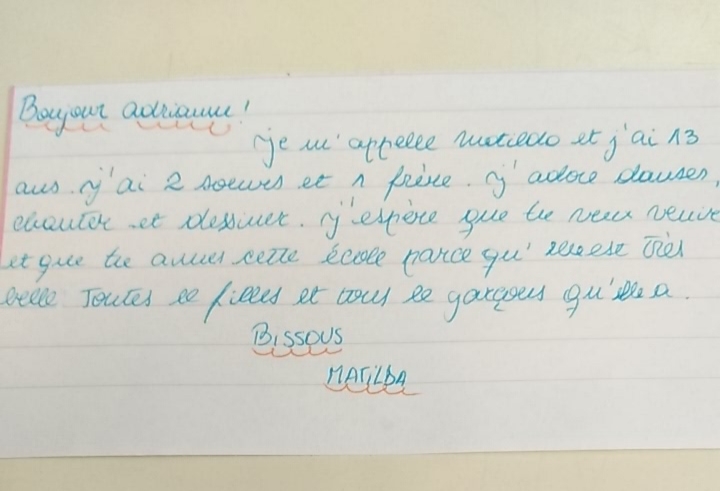 Bonjour adrianne!
je m'appelle Matilda et j'ai 13
ans. j'ai 2 soeurs et 1 frère. j'adore danser,
chanter et dessiner. j'espère que tu veux venir
et que tu aimes cette école parce qu'elle est très
belle toutes le filles et tous le garçons qu'elle a.
BISSOUS
MATILDA